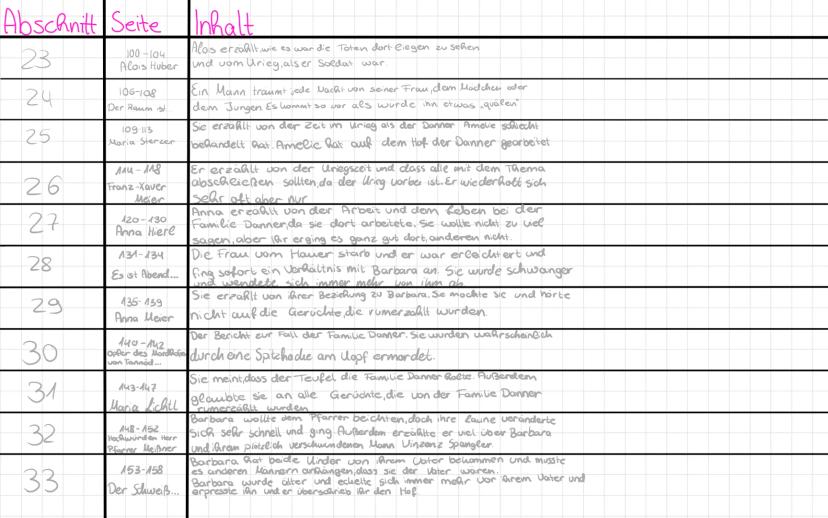 Abschnitt Seite Inhalt
23 100-104 Alois Huber
Alois erzählt, wie es war die Toten dort liegen zu sehen
und vom Krieg, als er Soldat war.
24 106-108 Der Raum ist...
Ein Mann träumt jede Nacht von seiner Frau, dem Mädchen oder
dem Jungen. Es kommt so vor als würde ihn etwas „quälen"
25 109-113 Maria Sterzer
Sie erzählt von der Zeit im Krieg als der Danner Amelie schlecht
behandelt hat. Amelie hat auf dem Hof der Danner gearbeitet
26 114-118 Franz-Xaver Meier
Er erzählt von der Kriegszeit und dass alle mit dem Thema
abschließen sollten, da der Krieg vorbei ist. Er wiederholt sich
sehr oft aber nur
27 120-130 Anna Hierl
Anna erzählt von der Arbeit und dem Leben bei der
Familie Danner, da sie dort arbeitete. Sie wollte nicht zu viel
sagen, aber ihr erging es ganz gut dort, anderen nicht.
28 131-134 Es ist Abend...
Die Frau vom Hauer starb und er war erleichtert und
fing sofort ein Verhältnis mit Barbara an. Sie wurde schwanger
und wendete sich immer mehr von ihm ab.
29 135-139 Anna Meier
Sie erzählt von ihrer Beziehung zu Barbara. Sie mochte sie und hörte
nicht auf die Gerüchte, die rumerzählt wurden.
30 140-142 Opfer des Mordhofes von Tannöd...
Der Bericht zur Fall der Familie Danner. Sie wurden wahrscheinlich
durch eine Spitzhacke am Kopf ermordet.
31 143-147 Maria Lichtl
Sie meint, dass der Teufel die Familie Danner holte. Außerdem
glaubte sie an alle Gerüchte, die von der Familie Danner
rumerzählt wurden
32 148-152 Hochwürden Herr Pfarrer Meißner
Barbara wollte dem Pfarrer beichten, doch ihre Laune veränderte
sich sehr schnell und ging. Außerdem erzählte er viel über Barbara
und ihrem plötzlich verschwundenen Mann Vinzenz Spangler.
33 153-158 Der Schweiß...
Barbara hat beide Kinder von ihrem Vater bekommen und musste
es anderen Männern anhängen, dass sie der Vater wären.
Barbara wurde älter und eckelte sich immer mehr vor ihrem Vater und
erpresste ihn und er überschrieb ihr den Hof.